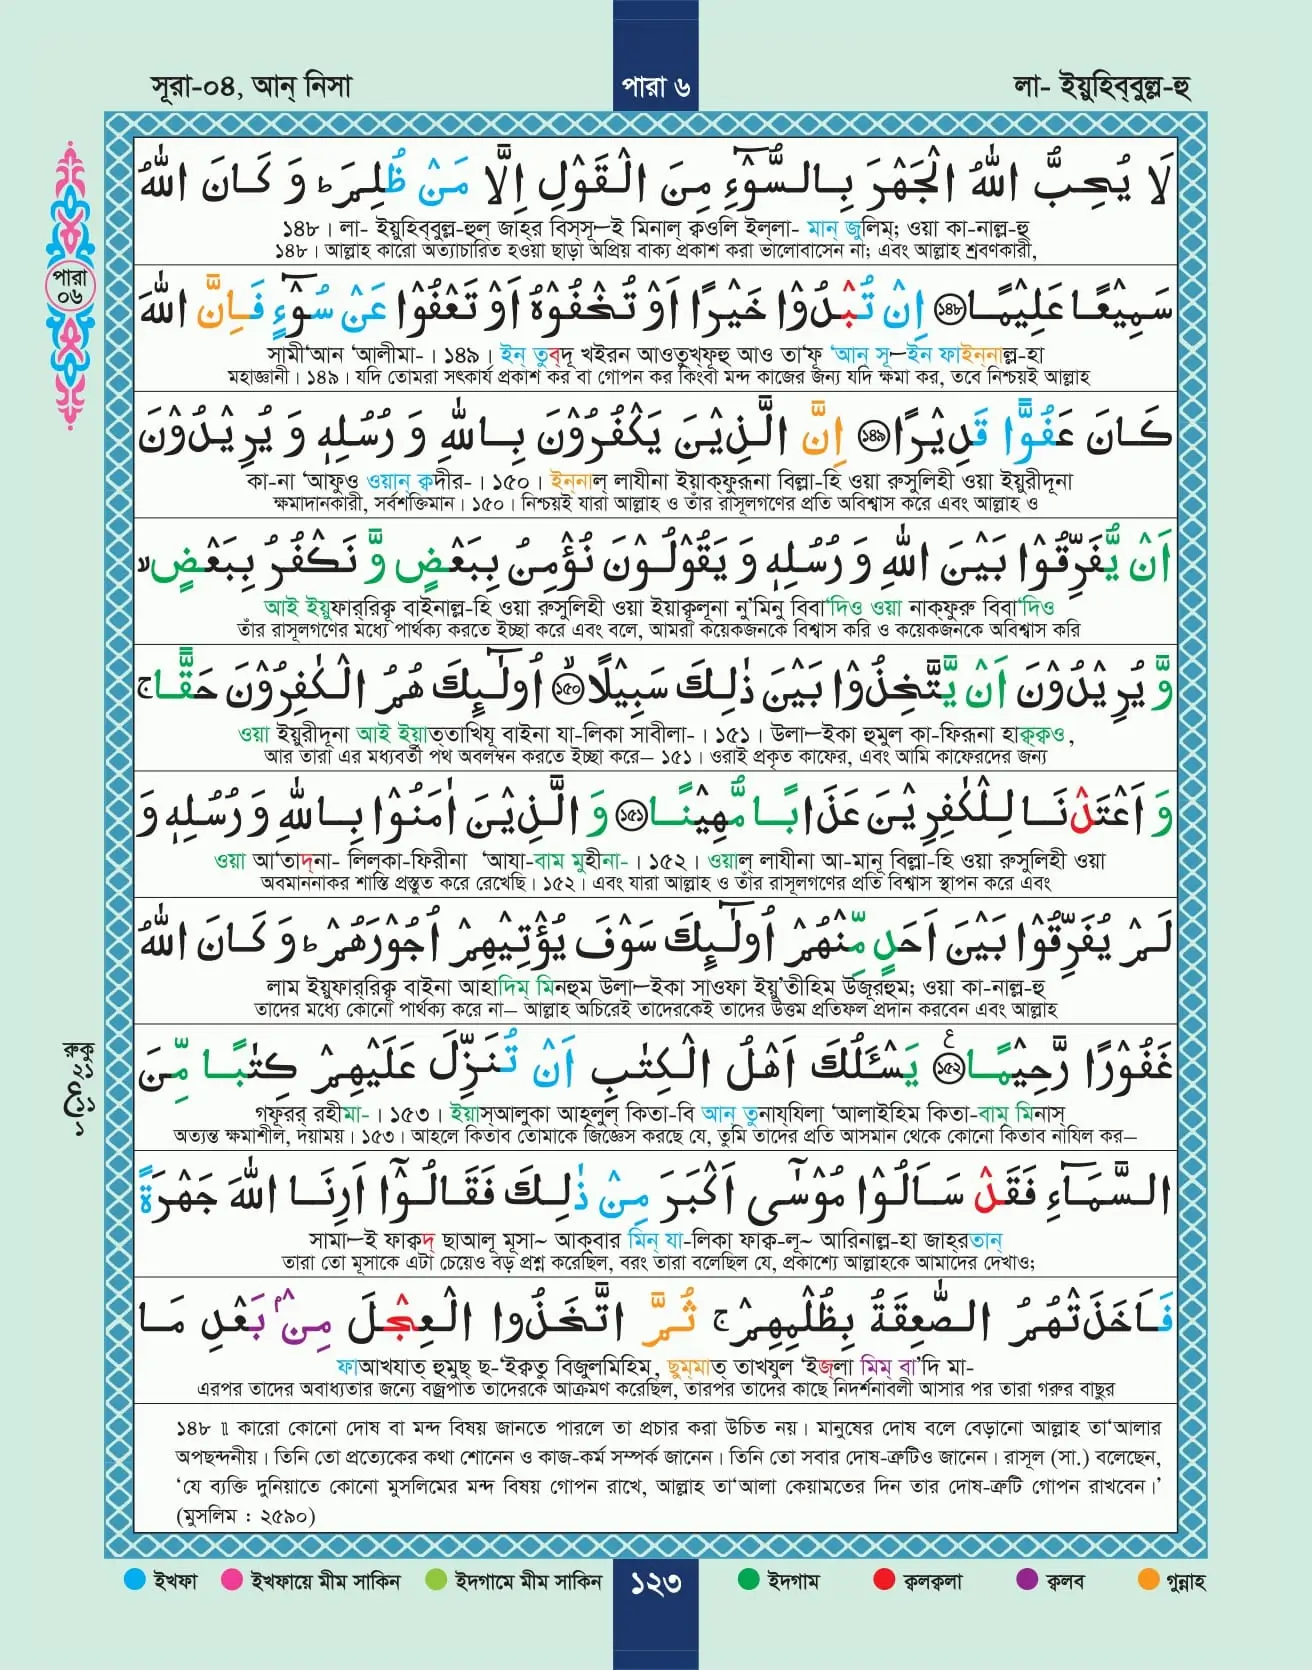 সূরা-০৪, আন্ নিসা
পারা ৬
লা- ইয়ুহিব্বুল্ল-হু
لَا يُحِبُّ اللّٰهُ الْجَهْرَ بِالسُّوْٓءِ مِنَ الْقَوْلِ اِلَّا مَنْ ظُلِمَ ؕ وَ كَانَ اللّٰهُ
১৪৮। লা- ইয়ুহিব্বুল্ল-হুল্ জাহ্‌র বিস্‌সূ—ই মিনাল্ ক্বওলি ইল্লা- মান্ জুলিম্; ওয়া কা-নাল্ল-হু
১৪৮। আল্লাহ কারো অত্যাচারিত হওয়া ছাড়া অপ্রিয় বাক্য প্রকাশ করা ভালোবাসেন না; এবং আল্লাহ শ্রবণকারী,
سَمِيْعًا عَلِيْمًا ﴿۱۴۸﴾ اِنْ تُبْدُوْا خَيْرًا اَوْ تُخْفُوْهُ اَوْ تَعْفُوْا عَنْ سُوْٓءٍ فَاِنَّ اللّٰهَ
সামী‘আন ‘আলীমা-। ১৪৯। ইন্ তুব্‌দূ খইরন আওতুখ্‌ফূহু আও তা‘ফূ ‘আন্ সূ—ইন ফাইন্নাল্ল-হা
মহাজ্ঞানী। ১৪৯। যদি তোমরা সৎকার্য প্রকাশ কর বা গোপন কর কিংবা মন্দ কাজের জন্য যদি ক্ষমা কর, তবে নিশ্চয়ই আল্লাহ
পারা
০৬
كَانَ عَفُوًّا قَدِيْرًا ﴿۱۴۹﴾ اِنَّ الَّذِيْنَ يَكْفُرُوْنَ بِاللّٰهِ وَ رُسُلِهٖ وَ يُرِيْدُوْنَ
কা-না ‘আফুও ওয়ান্ ক্বদীর-। ১৫০। ইন্নাল্ লাযীনা ইয়াক্‌ফুরূনা বিল্লা-হি ওয়া রুসুলিহী ওয়া ইয়ুরীদূনা
ক্ষমাদানকারী, সর্বশক্তিমান। ১৫০। নিশ্চয়ই যারা আল্লাহ ও তাঁর রাসূলগণের প্রতি অবিশ্বাস করে এবং আল্লাহ ও
اَنْ يُّفَرِّقُوْا بَيْنَ اللّٰهِ وَ رُسُلِهٖ وَ يَقُوْلُوْنَ نُؤْمِنُ بِبَعْضٍ وَّ نَكْفُرُ بِبَعْضٍ ۙ
আই ইয়ুফার্‌রিক্বূ বাইনাল্ল-হি ওয়া রুসুলিহী ওয়া ইয়াক্বূলূনা নু’মিনু বিবা‘দিও ওয়া নাক্‌ফুরু বিবা‘দিও
তাঁর রাসূলগণের মধ্যে পার্থক্য করতে ইচ্ছা করে এবং বলে, আমরা কয়েকজনকে বিশ্বাস করি ও কয়েকজনকে অবিশ্বাস করি
وَّ يُرِيْدُوْنَ اَنْ يَّتَّخِذُوْا بَيْنَ ذٰلِكَ سَبِيْلًا ﴿۱۵۰﴾ۙ اُولٰٓئِكَ هُمُ الْكٰفِرُوْنَ حَقًّا ۚ
ওয়া ইয়ুরীদূনা আই ইয়াত্তাখিযূ বাইনা যা-লিকা সাবীলা-। ১৫১। উলা—ইকা হুমুল কা-ফিরূনা হাক্ব্ক্বও,
আর তারা এর মধ্যবর্তী পথ অবলম্বন করতে ইচ্ছা করে– ১৫১। ওরাই প্রকৃত কাফের, এবং আমি কাফেরদের জন্য
وَ اَعْتَدْنَا لِلْكٰفِرِيْنَ عَذَابًا مُّهِيْنًا ﴿۱۵۱﴾ وَ الَّذِيْنَ اٰمَنُوْا بِاللّٰهِ وَ رُسُلِهٖ وَ
ওয়া আ‘তাদ্‌না- লিল্‌কা-ফিরীনা ‘আযা-বাম মুহীনা-। ১৫২। ওয়াল্ লাযীনা আ-মানূ বিল্লা-হি ওয়া রুসুলিহী ওয়া
অবমাননাকর শাস্তি প্রস্তুত করে রেখেছি। ১৫২। এবং যারা আল্লাহ ও তাঁর রাসূলগণের প্রতি বিশ্বাস স্থাপন করে এবং
لَمْ يُفَرِّقُوْا بَيْنَ اَحَدٍ مِّنْهُمْ اُولٰٓئِكَ سَوْفَ يُؤْتِيْهِمْ اُجُوْرَهُمْ ؕ وَ كَانَ اللّٰهُ
লাম ইয়ুফার্‌রিক্বূ বাইনা আহাদিম্ মিনহুম উলা—ইকা সাওফা ইয়ু’তীহিম উজূরহুম; ওয়া কা-নাল্ল-হু
তাদের মধ্যে কোনো পার্থক্য করে না– আল্লাহ অচিরেই তাদেরকেই তাদের উত্তম প্রতিফল প্রদান করবেন এবং আল্লাহ
রুকু
غَفُوْرًا رَّحِيْمًا ﴿۱۵۲﴾ يَسْـَٔلُكَ اَهْلُ الْكِتٰبِ اَنْ تُنَزِّلَ عَلَيْهِمْ كِتٰبًا مِّنَ
গফূরর্ রহীমা-। ১৫৩। ইয়াস্‌আলুকা আহ্‌লুল্ কিতা-বি আন্ তুনায্‌যিলা ‘আলাইহিম কিতা-বাম্ মিনাস্
অত্যন্ত ক্ষমাশীল, দয়াময়। ১৫৩। আহলে কিতাব তোমাকে জিজ্ঞেস করছে যে, তুমি তাদের প্রতি আসমান থেকে কোনো কিতাব নাযিল কর–
السَّمَآءِ فَقَدْ سَاَلُوْا مُوْسٰٓى اَكْبَرَ مِنْ ذٰلِكَ فَقَالُوْٓا اَرِنَا اللّٰهَ جَهْرَةً
সামা—ই ফাক্বদ্ ছাআলূ মূসা~ আক্‌বার মিন্ যা-লিকা ফাক্ব-লূ~ আরিনাল্ল-হা জাহ্‌রতান্
তারা তো মূসাকে এটা চেয়েও বড় প্রশ্ন করেছিল, বরং তারা বলেছিল যে, প্রকাশ্যে আল্লাহকে আমাদের দেখাও;
فَاَخَذَتْهُمُ الصّٰعِقَةُ بِظُلْمِهِمْ ۚ ثُمَّ اتَّخَذُوا الْعِجْلَ مِنْۢ بَعْدِ مَا
ফাআখযাত্ হুমুছ্ ছ-‘ইক্বতু বিজুলমিহিম, ছুম্মাত্ তাখযুল ‘ইজ্‌লা মিম্ বা’দি মা-
এরপর তাদের অবাধ্যতার জন্যে বজ্রপাত তাদেরকে আক্রমণ করেছিল, তারপর তাদের কাছে নিদর্শনাবলী আসার পর তারা গরুর বাছুর
১৪৮ ॥ কারো কোনো দোষ বা মন্দ বিষয় জানতে পারলে তা প্রচার করা উচিত নয়। মানুষের দোষ বলে বেড়ানো আল্লাহ তা‘আলার
অপছন্দনীয়। তিনি তো প্রত্যেকের কথা শোনেন ও কাজ-কর্ম সম্পর্ক জানেন। তিনি তো সবার দোষ-ত্রুটিও জানেন। রাসূল (সা.) বলেছেন,
‘যে ব্যক্তি দুনিয়াতে কোনো মুসলিমের মন্দ বিষয় গোপন রাখে, আল্লাহ তা‘আলা কেয়ামতের দিন তার দোষ-ত্রুটি গোপন রাখবেন।’
(মুসলিম : ২৫৯০)
ইখফা
ইখফায়ে মীম সাকিন
ইদগামে মীম সাকিন
১২৩
ইদগাম
ক্বলক্বলা
ক্বলব
গুন্নাহ